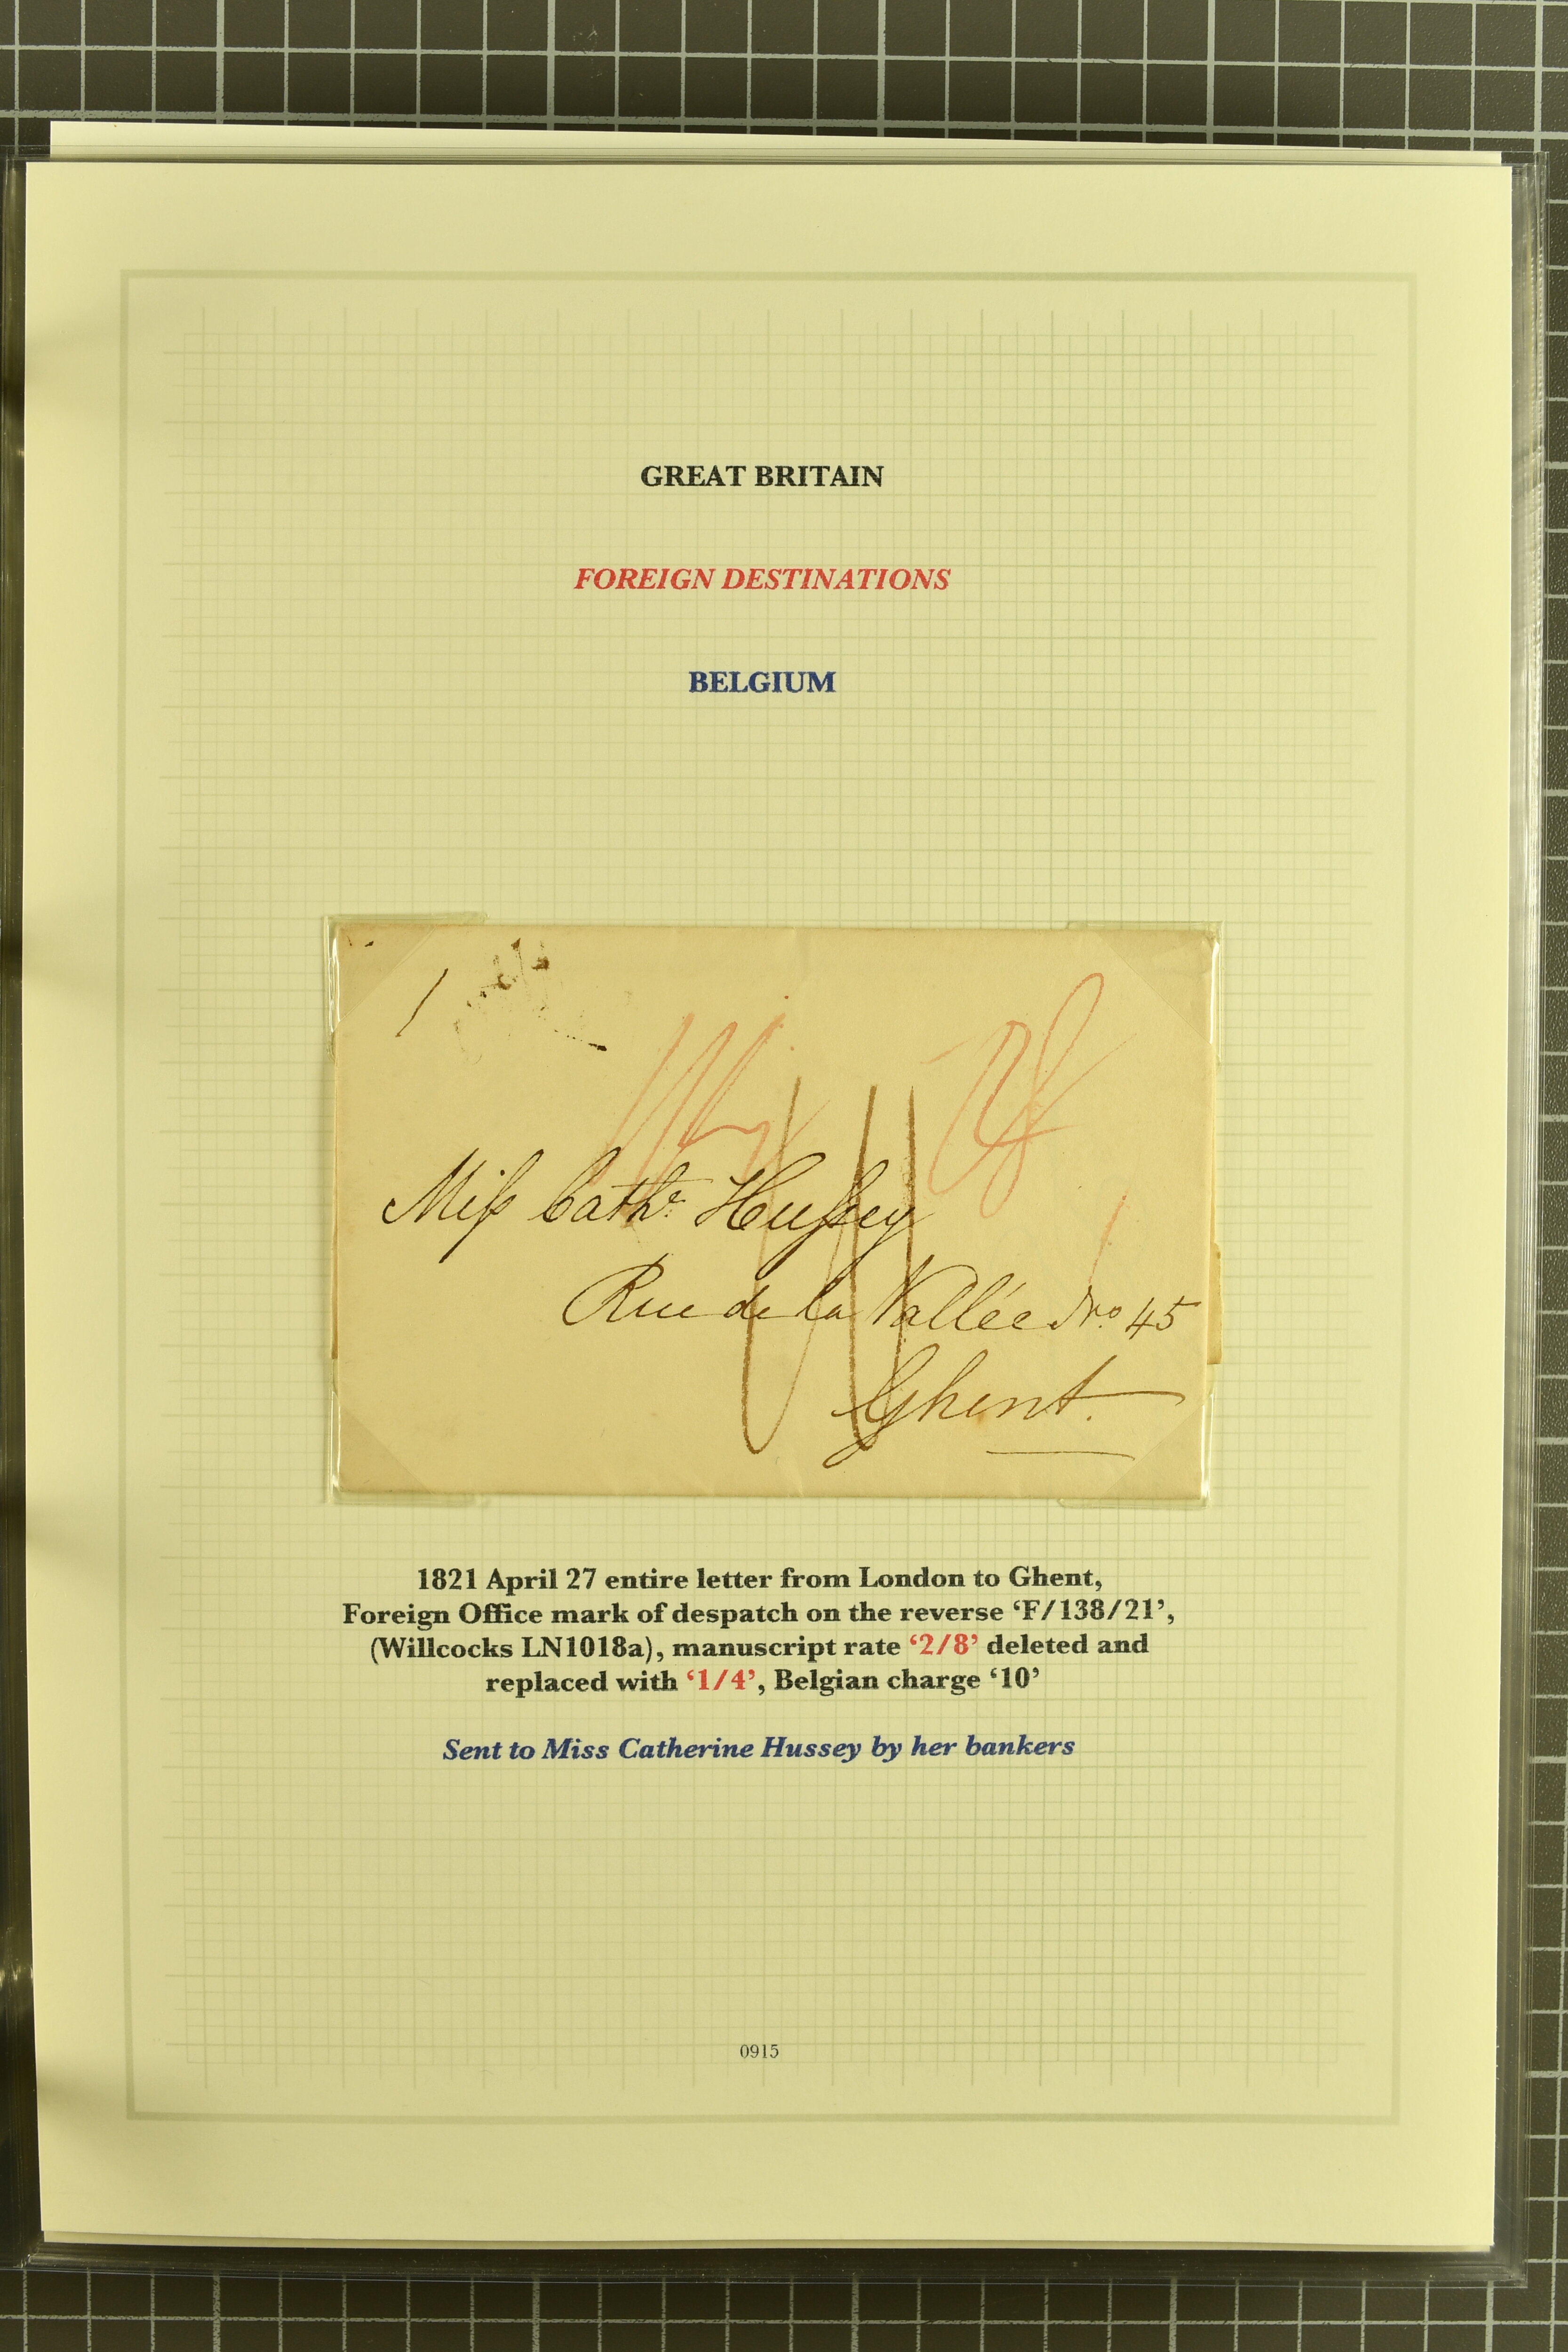 GREAT BRITAIN
FOREIGN DESTINATIONS
BELGIUM
Miſs Cathe. Huſsey
Rue de la Vallée Nro. 45
Ghent.
1821 April 27 entire letter from London to Ghent,
Foreign Office mark of despatch on the reverse ‘F/138/21’,
(Willcocks LN1018a), manuscript rate ‘2/8’ deleted and
replaced with ‘1/4’, Belgian charge ‘10’
Sent to Miss Catherine Hussey by her bankers
0915